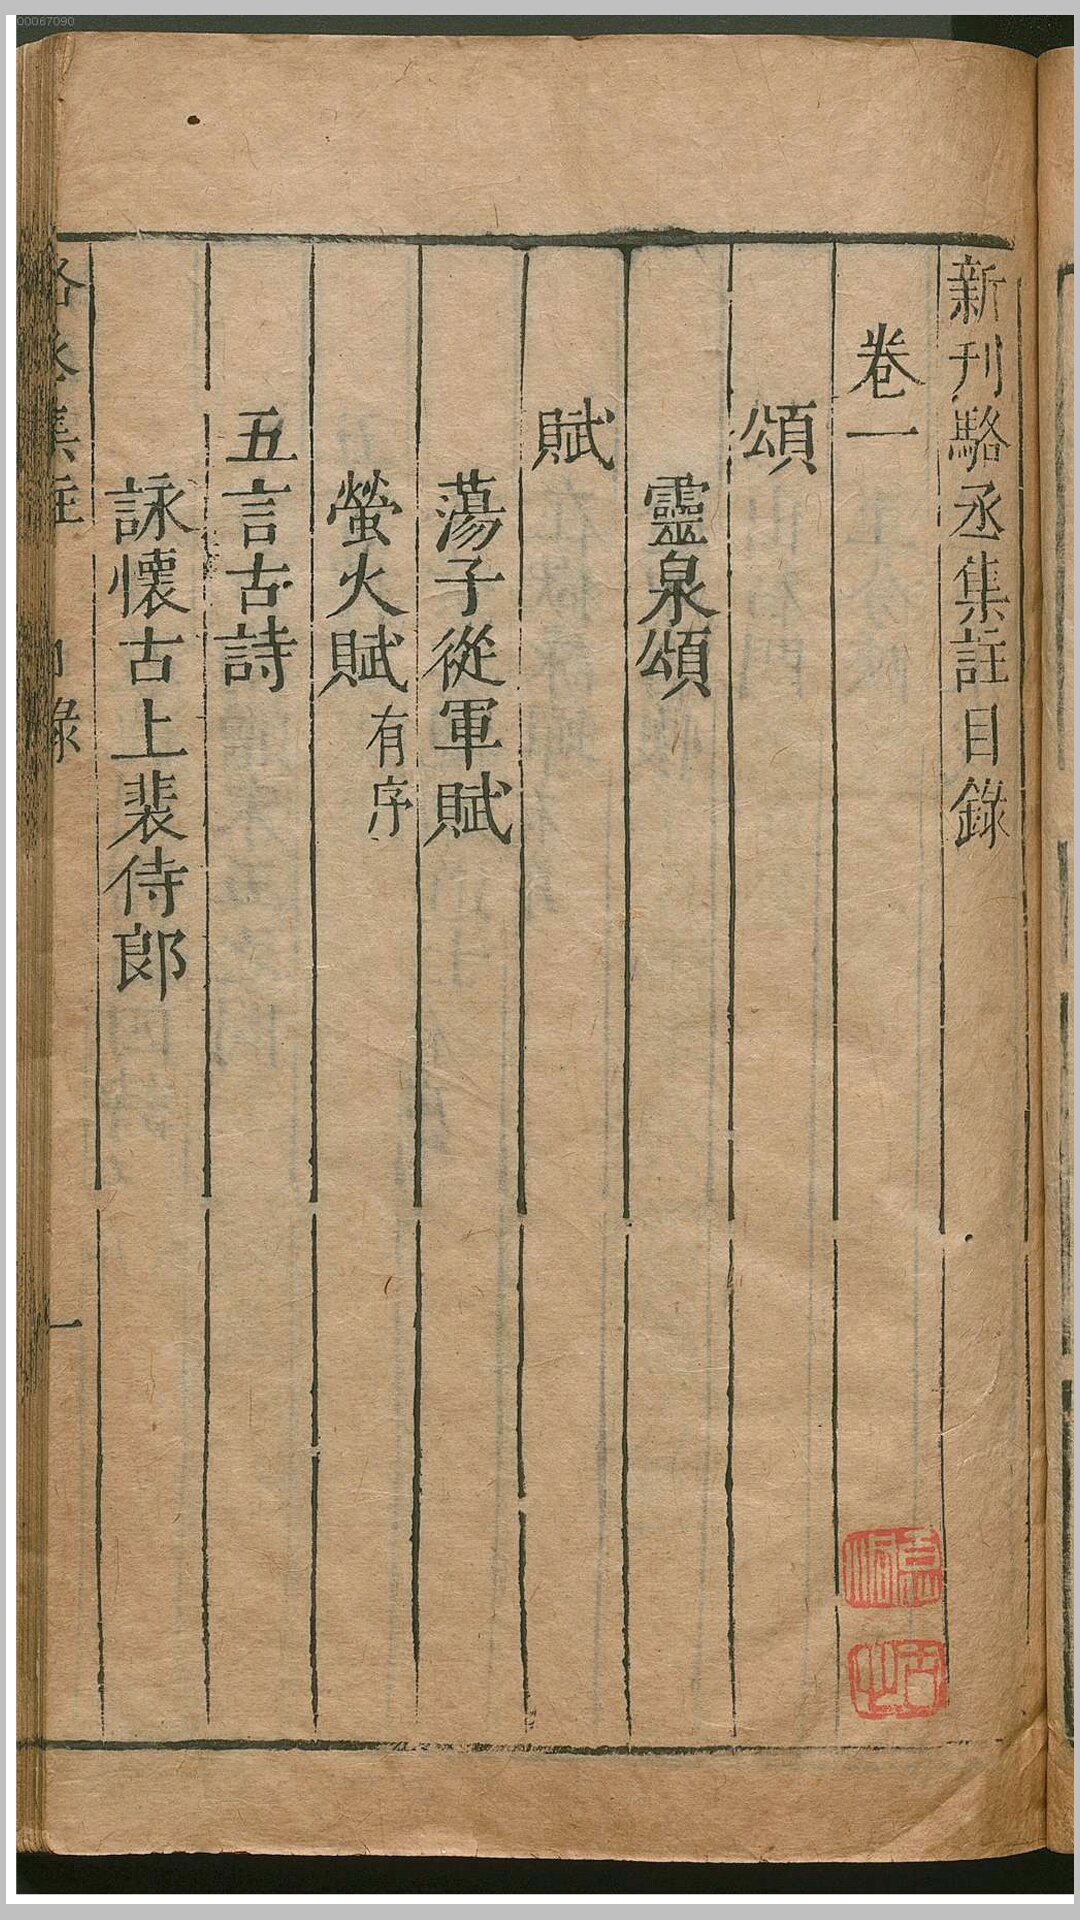 00067090
新刊駱丞集註目錄
卷一
頌
靈泉頌
賦
蕩子從軍賦
螢火賦 有序
五言古詩
詠懷古上裴侍郎
駱丞集註 目錄 一